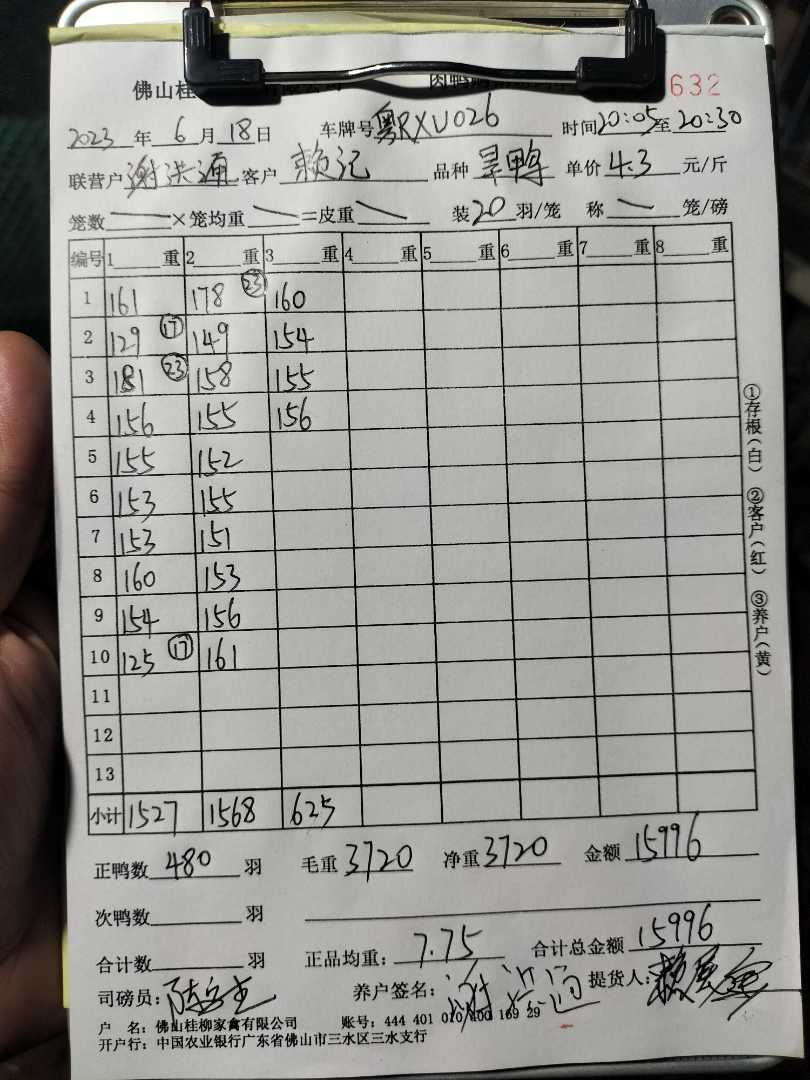 佛山桂 632
2023年6月18日 车牌号粤RXU026 时间20:05至20:30
联营户谢洪通 客户赖记 品种旱鸭 单价4.3元/斤
笼数×笼均重=皮重 装20羽/笼 称笼/磅
编号 1重 2重 3重 4重 5重 6重 7重 8重
1 161 178 23 160
2 129 17 149 154
3 181 23 158 155
4 156 155 156
5 155 152
6 153 155
7 153 151
8 160 153
9 154 156
10 125 17 161
11
12
13
小计 1527 1568 625
正鸭数480羽 毛重3720 净重3720 金额15996
次鸭数羽
合计数羽 正品均重:7.75 合计总金额15996
司磅员: 养户签名: 提货人:
户 名:佛山桂柳家禽有限公司 账号:444 401 010 400 169 29
开户行:中国农业银行广东省佛山市三水区三水支行
①存根(白) ②客户(红) ③养户(黄)